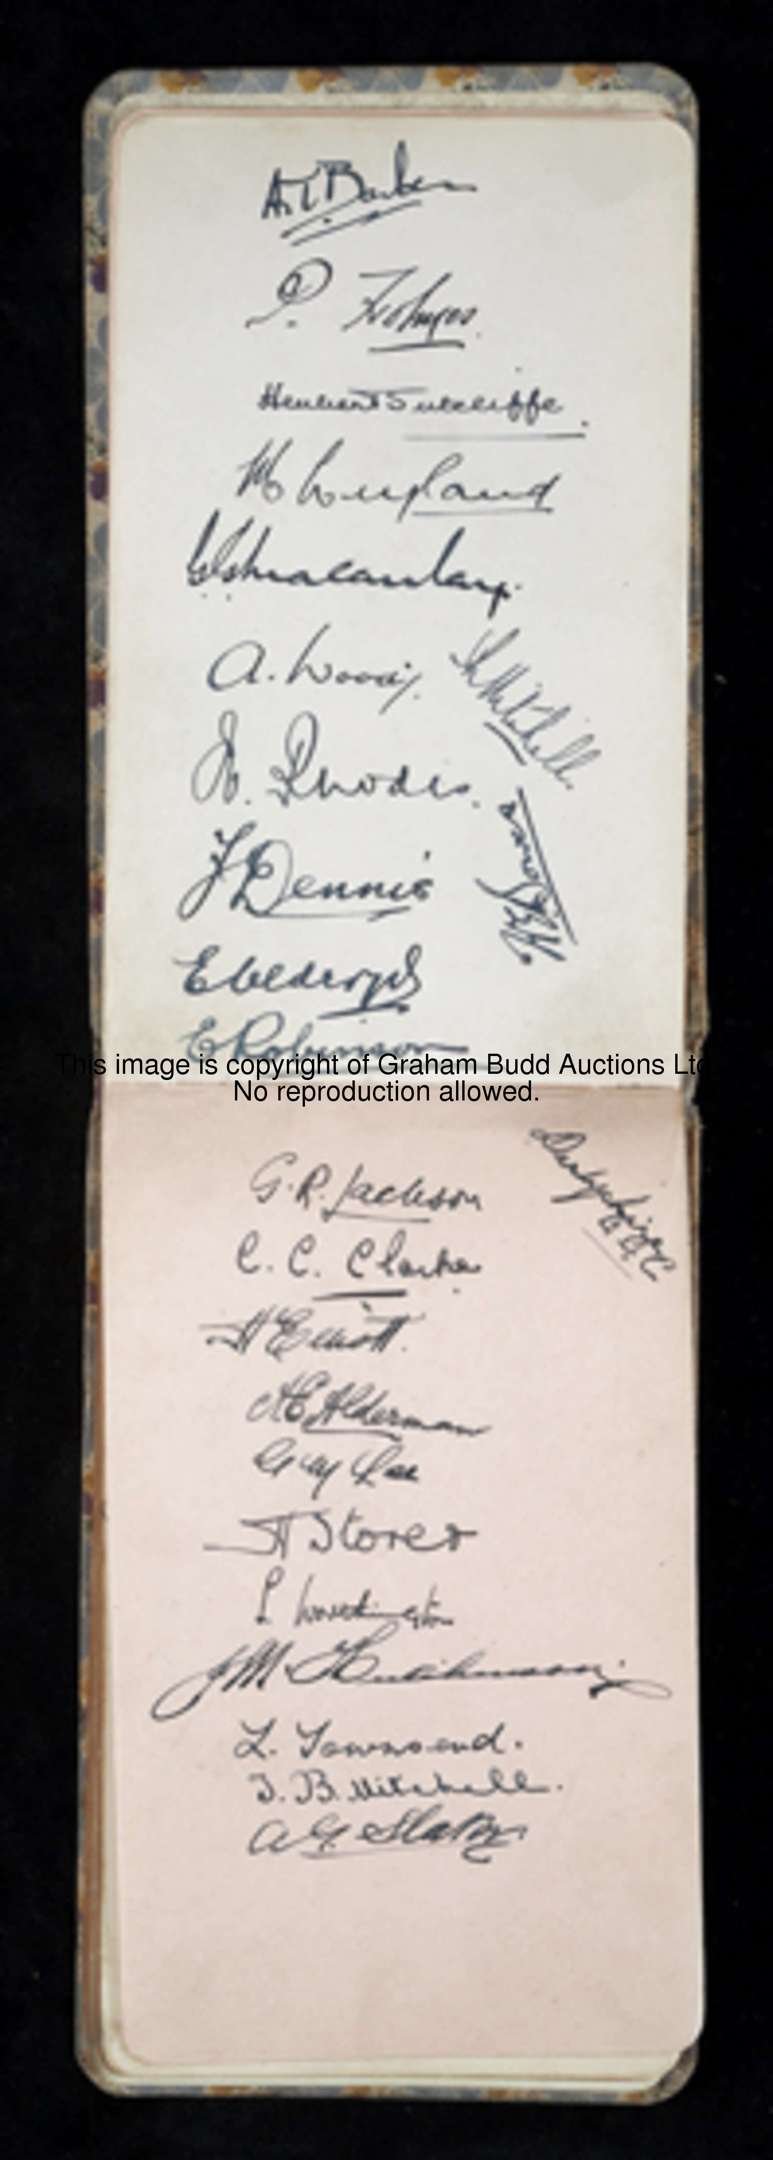 A.T. Barber
P. Holmes
Herbert Sutcliffe
M Leyland
G.G. Macaulay.
A. Wood.
A Mitchell
W. Rhodes.
F Dennis
E Oldroyd
E Robinson
This image is copyright of Graham Budd Auctions Ltd
No reproduction allowed.
Derbyshire C.C.C
G.R. Jackson
C. C. Clarke
H Elliott.
A E Alderman
Garry Lee
H Storer
S Worthington
J M. Hutchinson
L. Townsend.
T. B. Mitchell.
A G. Slater